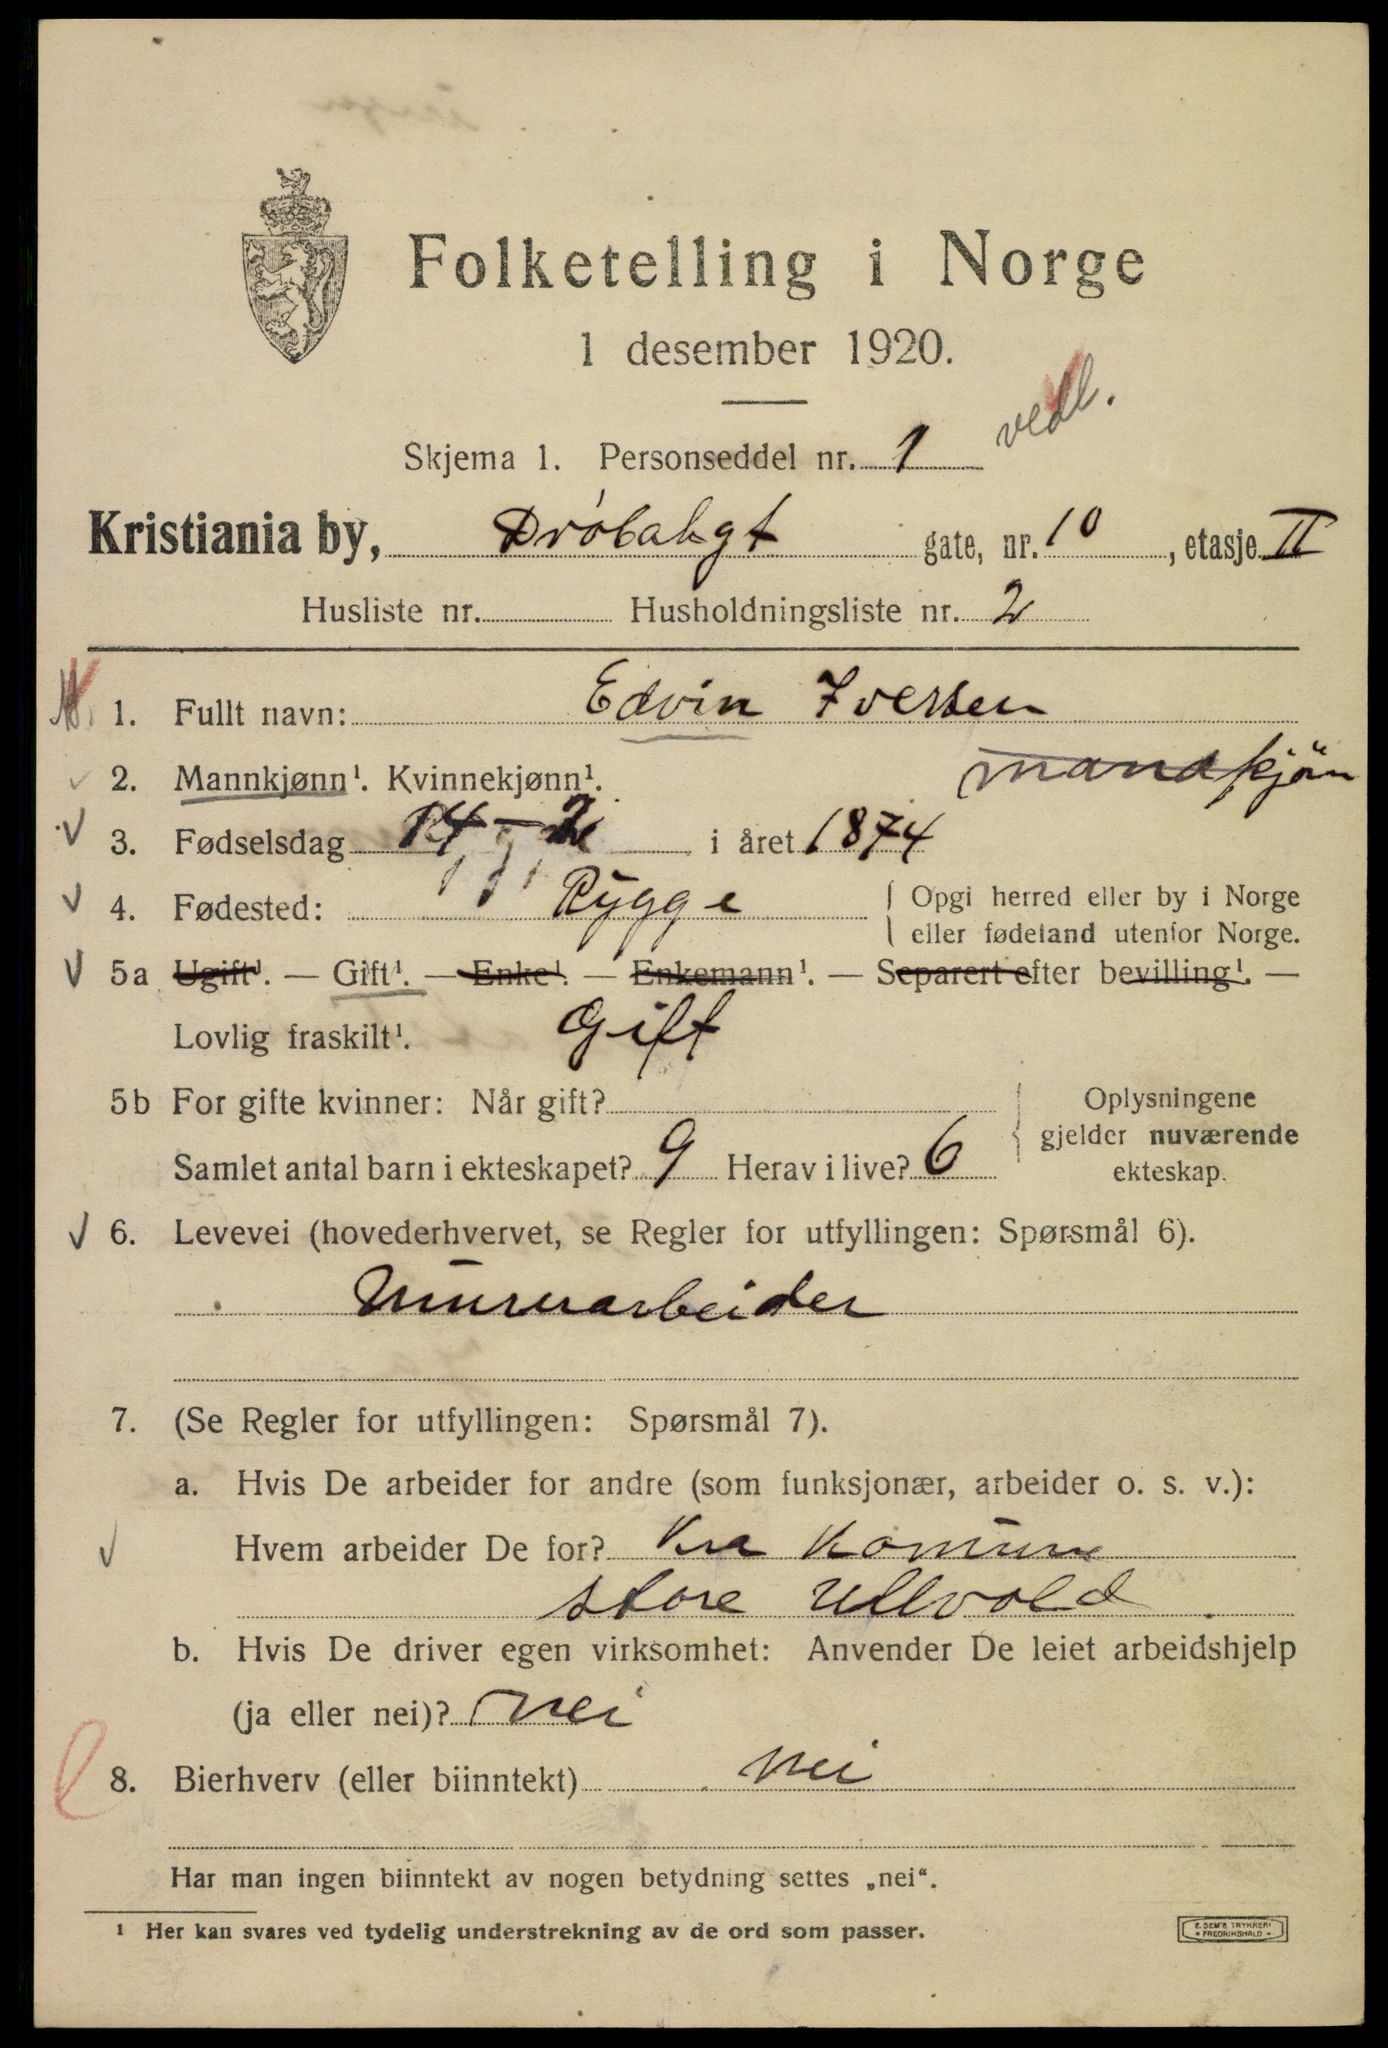 Folketelling i Norge
1 desember 1920.
vedl.
Skjema 1. Personseddel nr. 1
Kristiania by, Drøbakgt gate, nr. 10, etasje II
Husliste nr. Husholdningsliste nr. 2
1. Fullt navn: Edvin Iversen
2. Mannkjønn¹. Kvinnekjønn¹. mandkjön
3. Fødselsdag 14 - 2 i året 1874
4. Fødested: Rygge { Opgi herred eller by i Norge
eller fødeland utenfor Norge.
5a Ugift¹. — Gift¹. — Enke¹. — Enkemann¹. — Separert efter bevilling¹. —
Lovlig fraskilt¹. Gift
5b For gifte kvinner: Når gift? Oplysningene
gjelder nuværende
Samlet antal barn i ekteskapet? 9 Herav i live? 6 ekteskap.
6. Levevei (hovederhvervet, se Regler for utfyllingen: Spørsmål 6).
Murerarbeider
7. (Se Regler for utfyllingen: Spørsmål 7).
a. Hvis De arbeider for andre (som funksjonær, arbeider o. s. v.):
Hvem arbeider De for? Kra Komune
store Ullvold
b. Hvis De driver egen virksomhet: Anvender De leiet arbeidshjelp
(ja eller nei)? nei
8. Bierhverv (eller biinntekt) nei
Har man ingen biinntekt av nogen betydning settes „nei“.
¹ Her kan svares ved tydelig understrekning av de ord som passer.
E. SEM'S TRYKKERI
FREDRIKSHALD